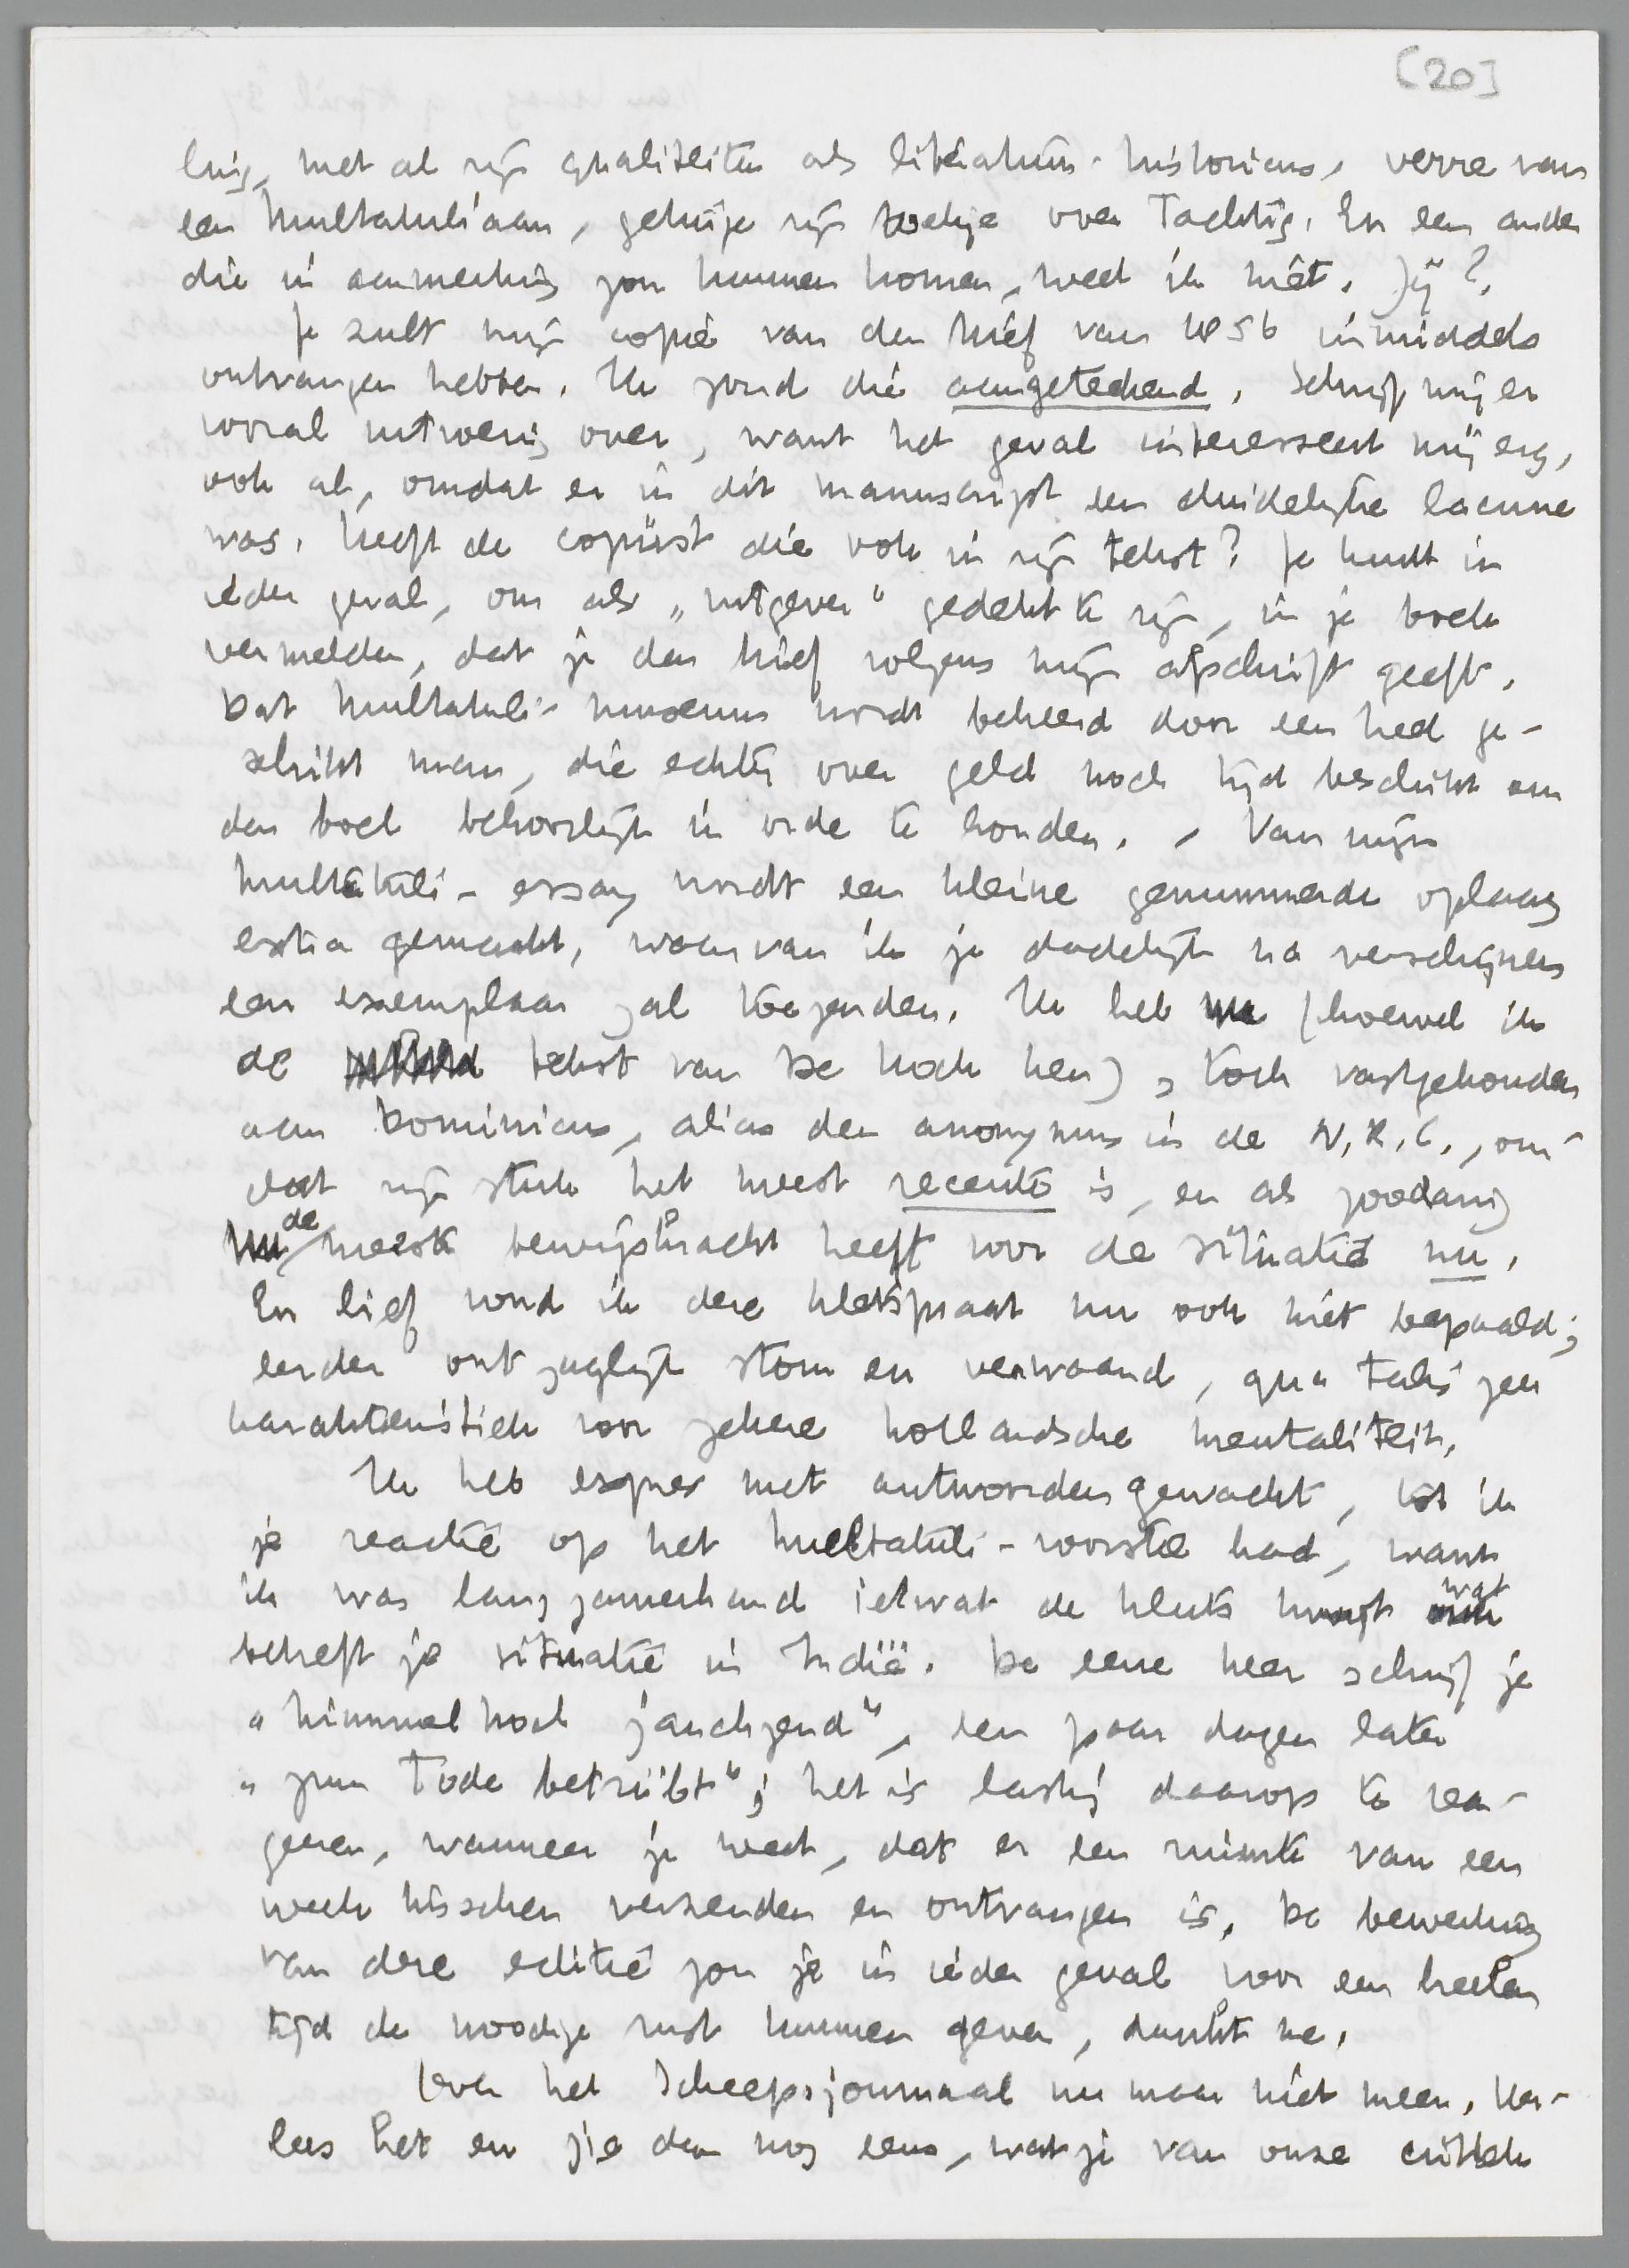 [20]
ling, met al zijn qualiteiten als literatuur-historicus, verre van
een Multatuliaan, getuige zijn boekje over Tachtig. En een ander
die in aanmerking zou kunnen komen, weet ik niet. Jij?
Je zult mijn copie van den brief van 1856 inmiddels
ontvangen hebben. Ik zond die aangeteekend. Schrijf mij er
vooral uitvoerig over, want het geval interesseert mij erg,
ook al, omdat er in dit manuscript een duidelijke lacune
was. Heeft de copiïst die ook in zijn tekst? Je kunt in
ieder geval, om als „uitgever" gedekt te zijn, in je boek
vermelden, dat je den brief volgens mijn afschrift geeft.
Dat Multatuli-museum wordt beheerd door een heel ge-
schikt man, die echter over geld noch tijd beschikt om
den boel behoorlijk in orde te houden. - Van mijn
Multatuli-essay wordt een kleine genummerde oplaag
extra gemaakt, waarvan ik je dadelijk na verschijnen
een exemplaar zal toezenden. Ik heb (hoewel ik
de tekst van De Kock ken), toch vastgehouden
aan Dominicus, alias den anonymus in de N.R.C., om-
dat zijn stuk het meest recente is, en als zoodanig
de meeste bewijskracht heeft voor de situatie nu.
En lief vond ik deze kletspraat nu ook niet bepaald;
eerder ontzaglijk stom en verwaand, qua talis zeer
karakteristiek voor zekere hollandsche mentaliteit.
Ik heb expres met antwoorden gewacht, tot ik
je reactie op het Multatuli-voorstel had, want
ik was langzamerhand ietwat de kluts kwijt wat
betreft je situatie in Indië. De eene keer schrijf je
„himmelhoch jauchzend", een paar dagen later
„zum Tode betrübt"; het is lastig daarop te rea-
geeren, wanneer je weet, dat er een ruimte van een
week tusschen verzenden en ontvangen is. De bewerking
van deze editie zou je in ieder geval voor een heelen
tijd de noodige rust kunnen geven, dunkt me.
Over het Scheepsjournaal nu maar niet meer. Her-
lees het en zie dan nog eens, wat je van onze critiek